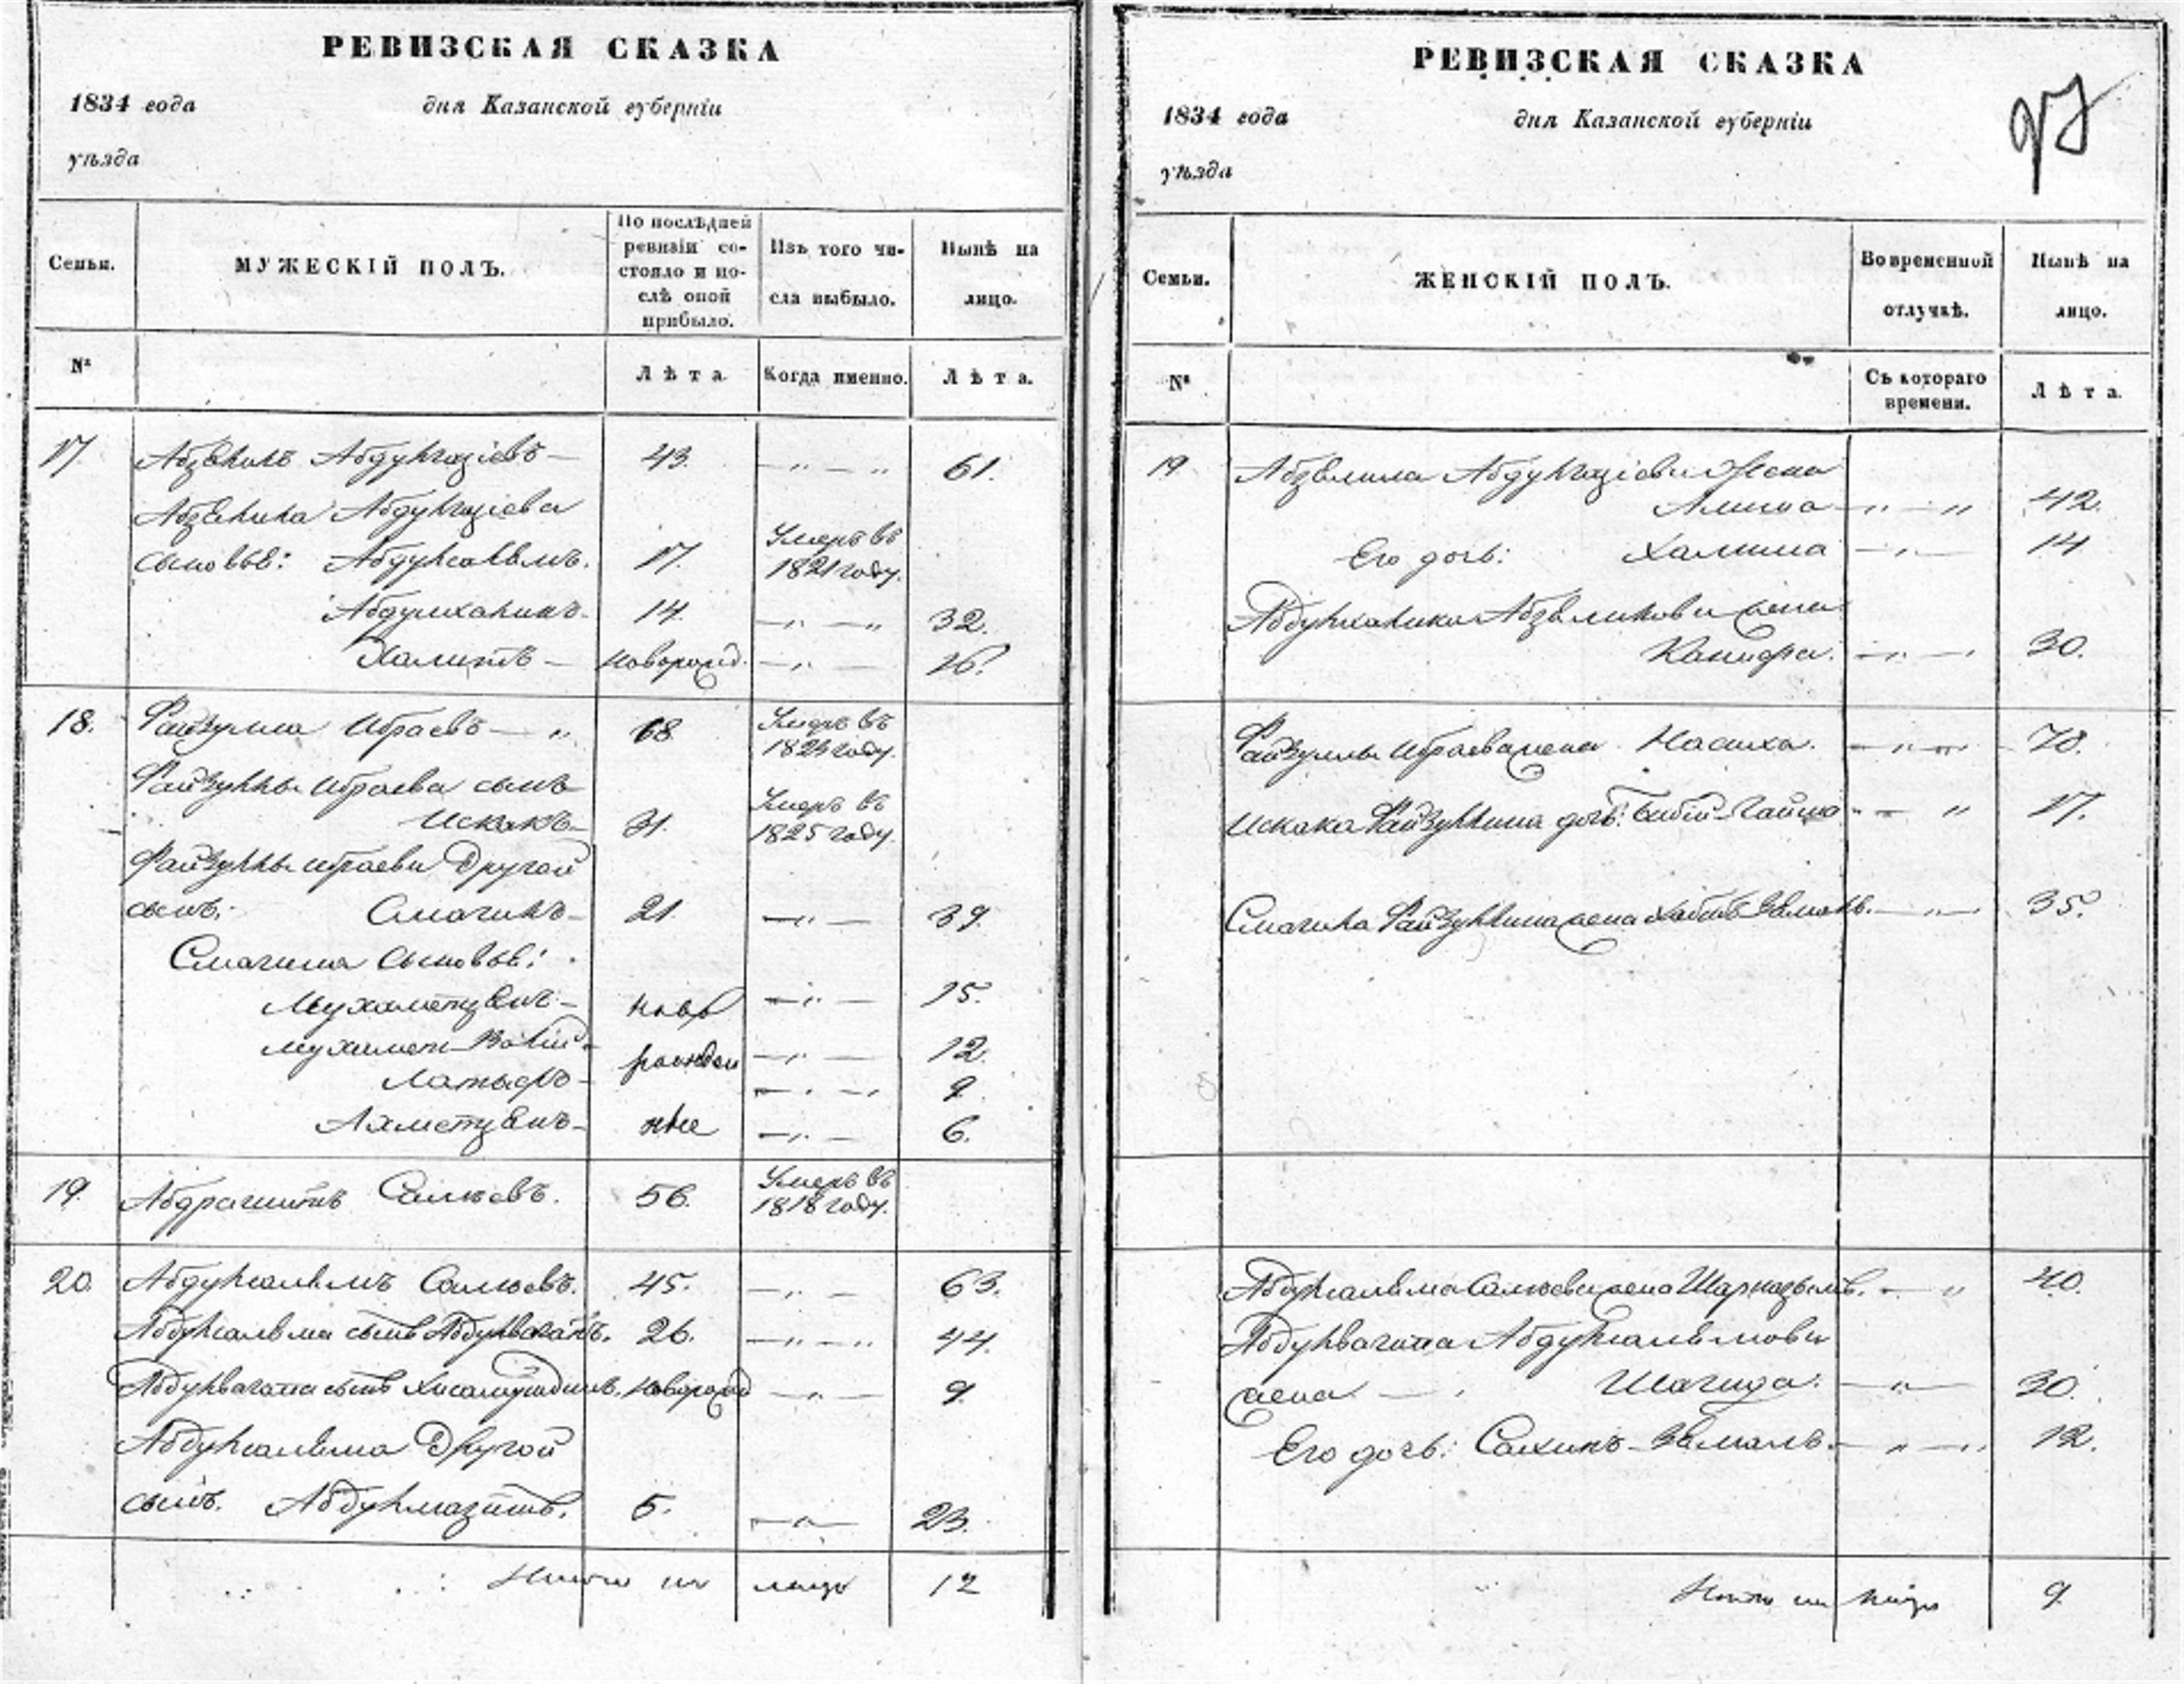 РЕВИЗСКАЯ СКАЗКА
1834 года дня Казанской губерніи
уѣзда
Семьи. МУЖЕСКІЙ ПОЛЪ. По послѣдней ревизіи состояло и послѣ оной прибыло. Изъ того числа выбыло. Нынѣ на лицо.
№ Лѣта Когда именно. Лѣта.
17. Абзелилъ Абдулгазіевъ 43. 61.
Абзелила Абдулгазіева
сыновья: Абдулсалямъ. 17. Умеръ въ 1821 году.
Абдулхаликъ 14. 32.
Халитъ новорожд. 16.
18. Файзулла Ибраевъ 68 Умеръ въ году.
Файзуллы Ибраева сынъ
Искакъ 31. Умеръ въ 1825 году
Файзуллы Ибраева Другой
сынъ: Смагилъ 21. 39.
Смагила Сыновья:
Мухаметзянъ 15.
Мухамет-Валій 12.
Латыфъ 9
Ахметзянъ 6.
новорожденные
19. Абдрашитъ Салеевъ. 56. Умеръ въ 1818 году.
20. Абдулсалямъ Салеевъ. 45. 63.
Абдулсаляма сынъ Абдулвагапъ. 26. 44.
Абдулвагапа сынъ Хисамутдинъ. новорожд 9.
Абдулсаляма Другой
сынъ. Абдулмазитъ. 5. 23.
Итого на лицо 12
РЕВИЗСКАЯ СКАЗКА
1834 года дня Казанской губерніи
уѣзда
Семьи. ЖЕНСКІЙ ПОЛЪ. Во временной отлучкѣ. Нынѣ на лицо.
№ Съ котораго времени. Лѣта.
Абзелила Абдулгазіева Жена
42.
Его дочь: Халима 14
Абдулхалика Абзелилова жена
30.
Файзуллы Ибраева жена Насиха.
Искака Файзуллина дочь: Бибій-Гайша 17.
Смагила Файзуллина жена 35.
Абдулсаляма Салеева жена 40.
Абдулвагапа Абдулсалямова
жена Шагида. 30.
Его дочь: Сахипъ-Земалъ. 12.
Итого на лицо 9